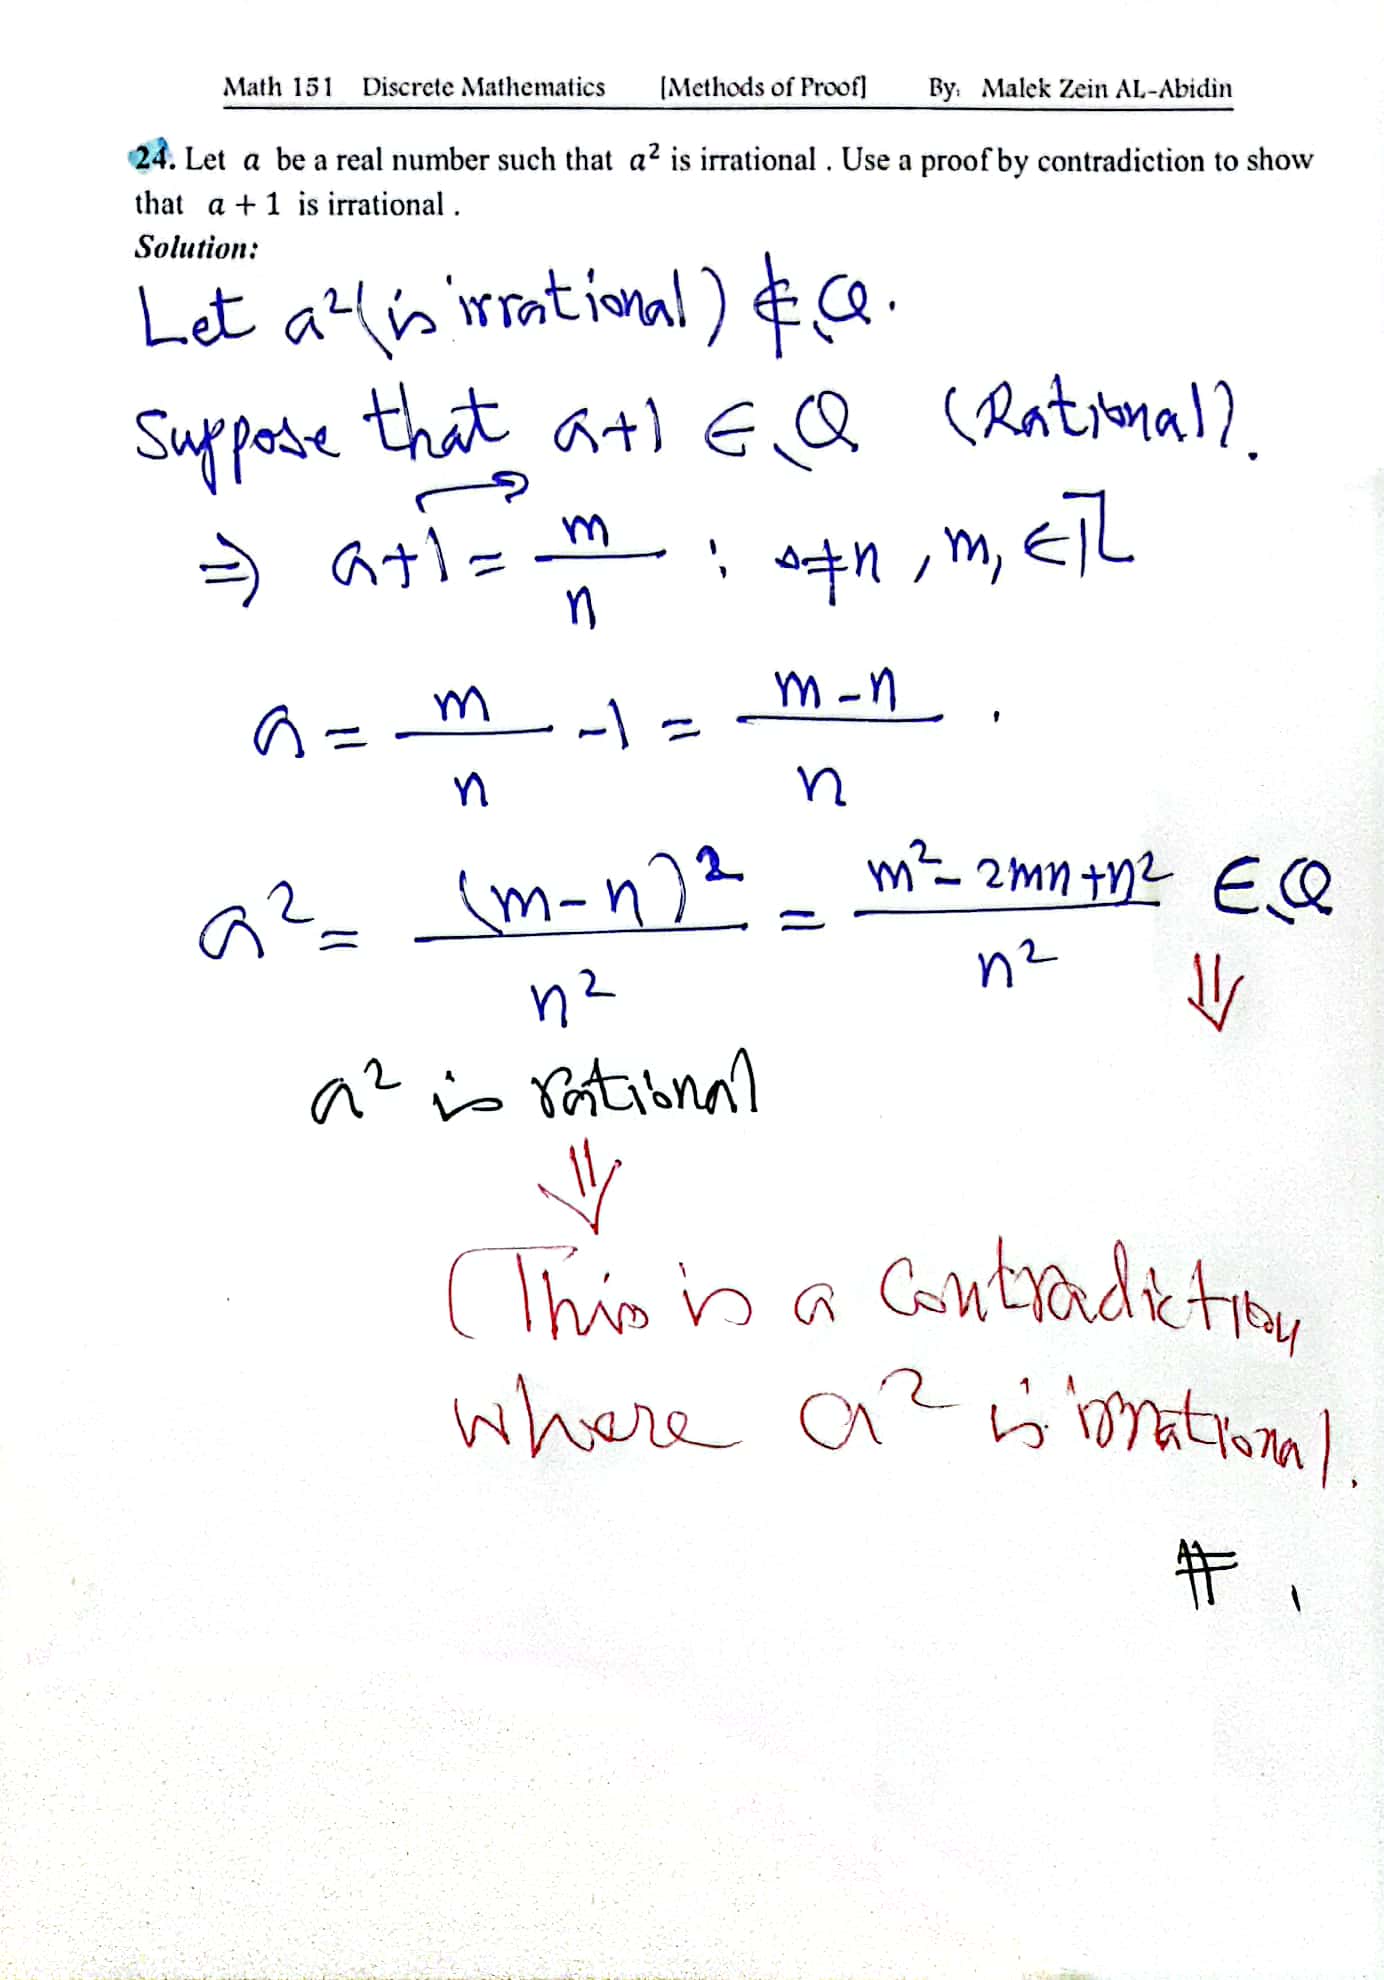 Math 151 Discrete Mathematics [Methods of Proof] By: Malek Zein AL-Abidin
24. Let a be a real number such that a² is irrational . Use a proof by contradiction to show
that a + 1 is irrational .
Solution:
Let a² (is irrational) ∉ Q.
Suppose that a+1 ∈ Q (Rational).
⇒ a+1 = m/n ; 0≠n, m, ∈ ℤ
a = m/n -1 = m-n/n .
a² = (m-n)²/n² = m²-2mn+n²/n² ∈ Q
⇓
a² is rational
⇓
(This is a Contradiction
where a² is irrational.
#.